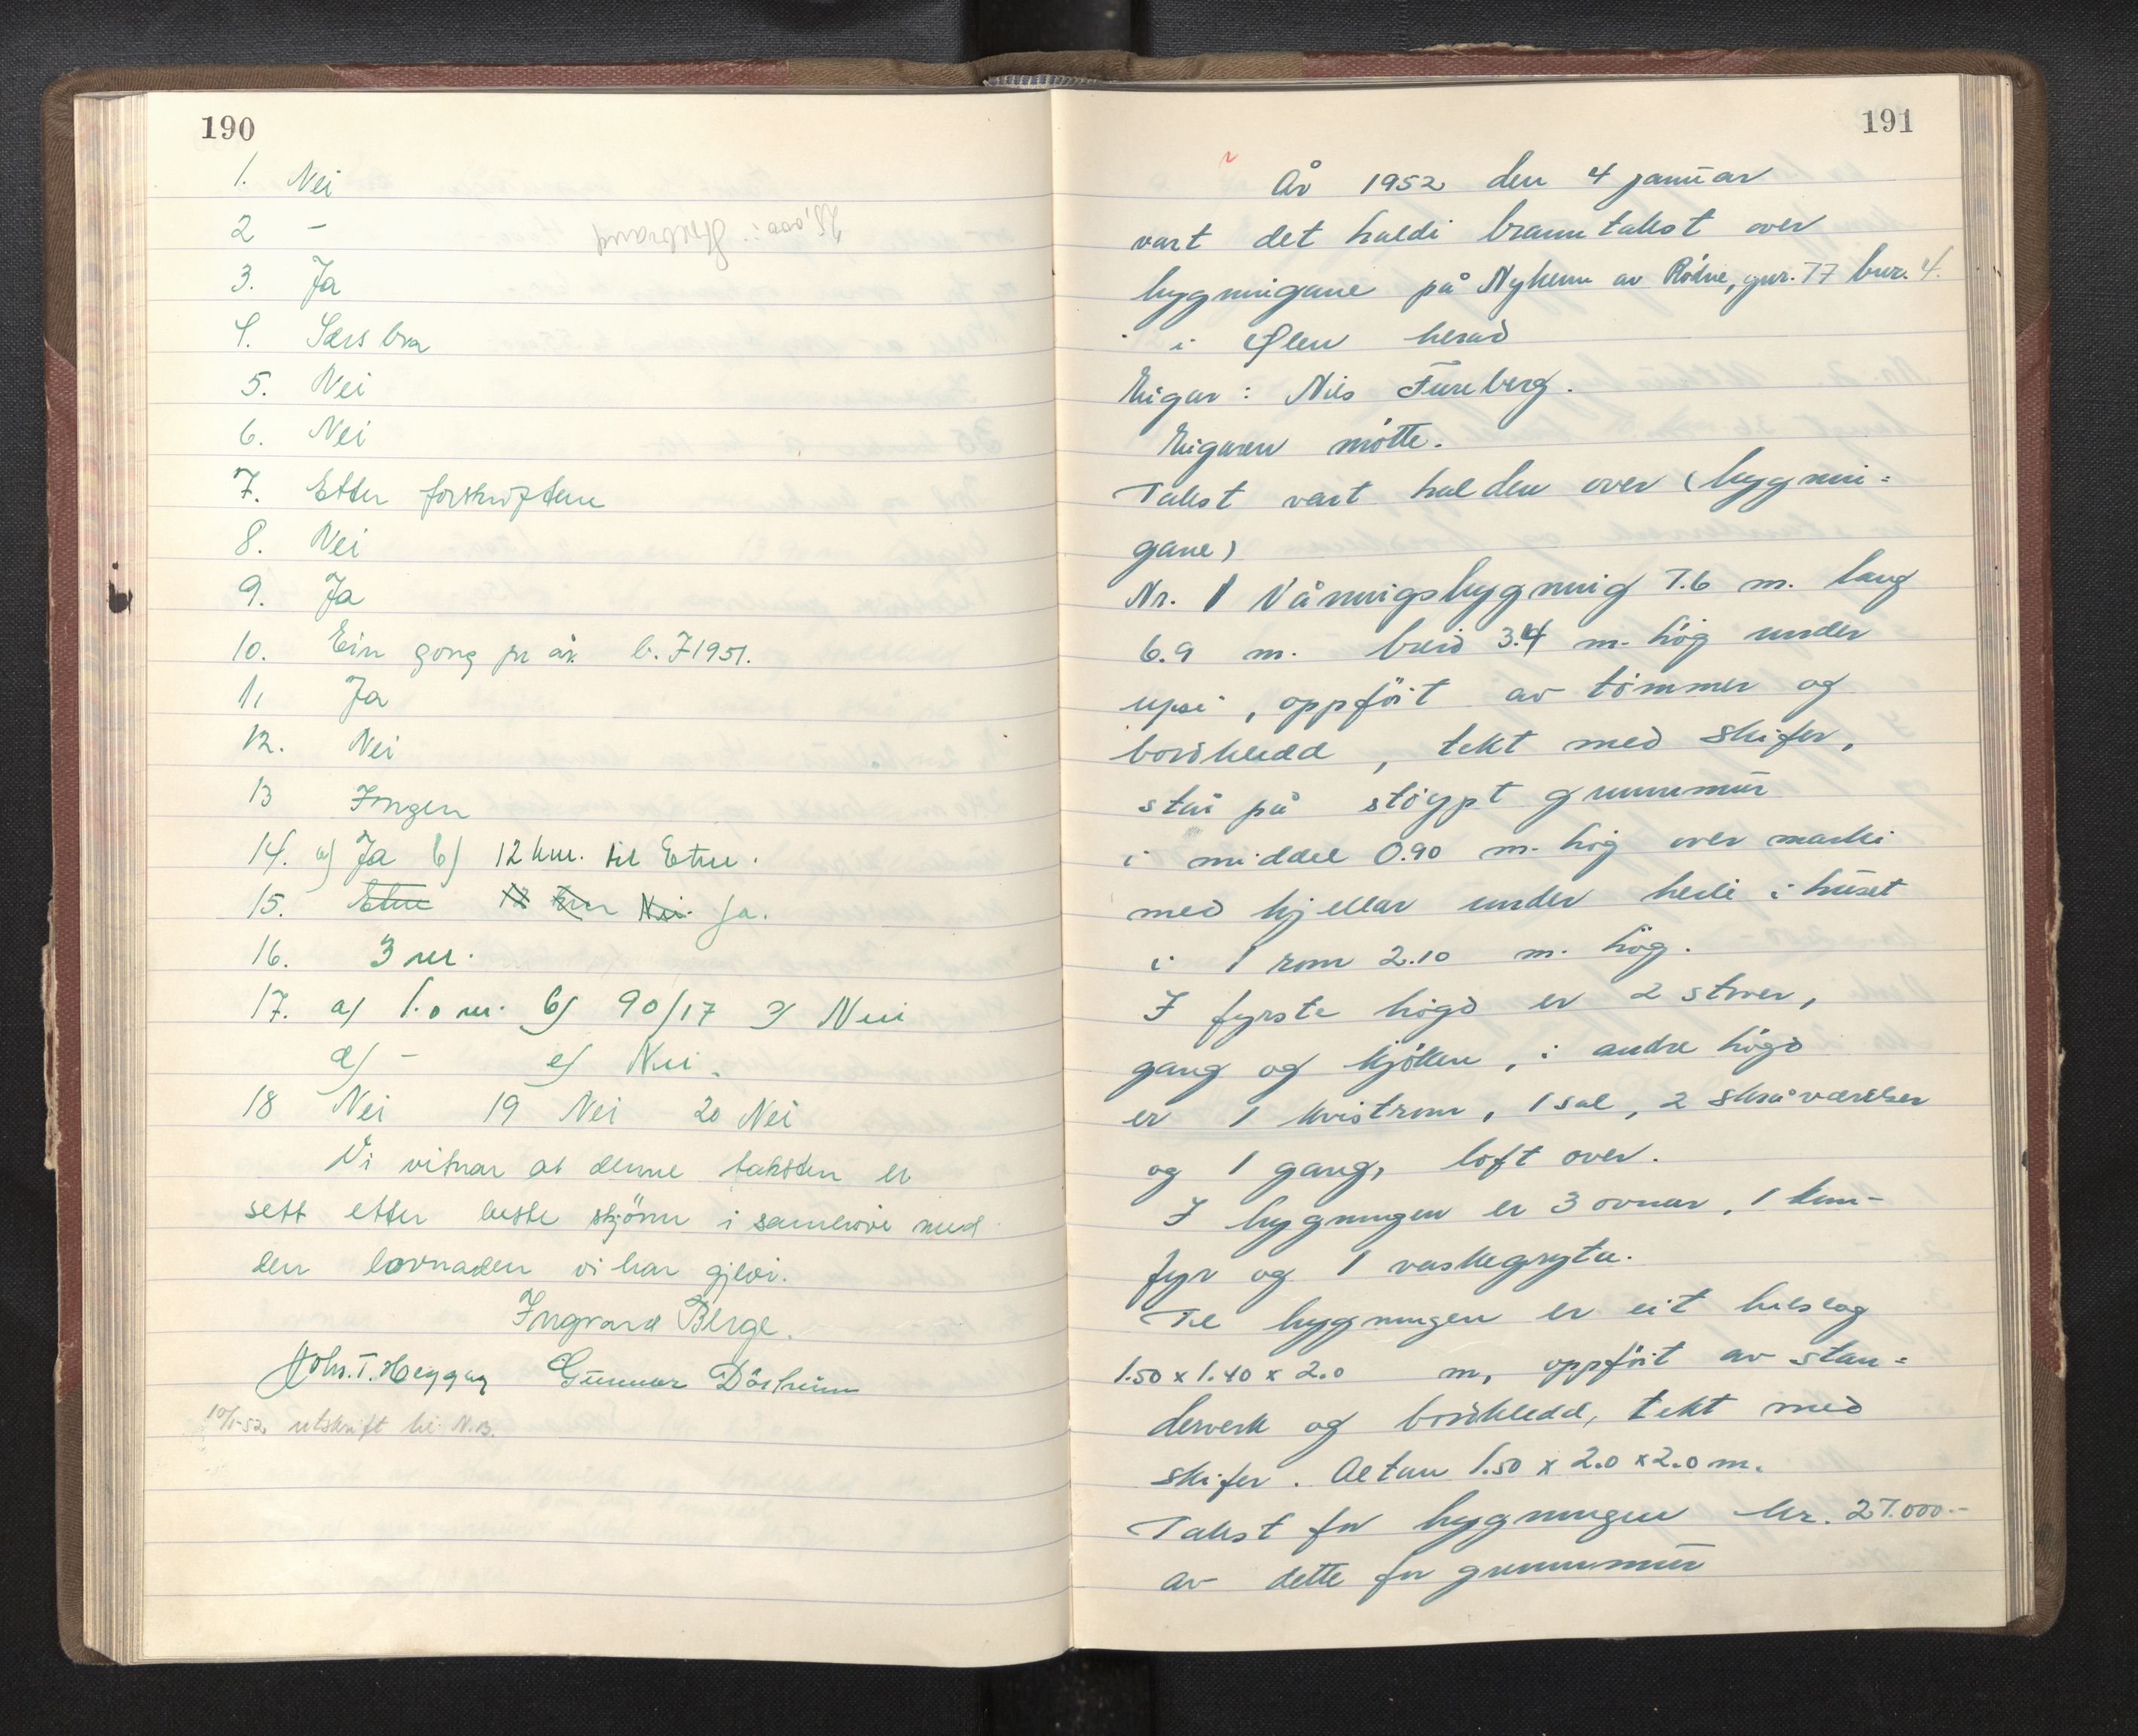 190
1. Nei
2 -
3. Ja
4. Særs bra
5. Nei
6. Nei
7. Etter forskriftene
8. Nei
9. Ja
10. Ein gong pr år. b. F 1951.
11 Ja
12. Nei
13 Ingen
14. a) Ja b) 12 km. til Etne.
15. Etne 12 km Nei. Ja.
16. 3 m.
17. a) 1.0 m. b) 90/17 3) Nei
d) - e) Nei.
18 Nei 19 Nei 20 Nei
Vi vitnar at denne taksten er
sett etter beste skjönn i samhøve med
den lovnaden vi har gjevi.
Ingvard Berge.
Joh. T. Heggen Gunnar Dörheim
10/1-52 utskrift til N.B.
25,000: Storebrand
191
År 1952 den 4 januar
vart det haldi branntakst over
bygningane på Nyheim av Rödne, gnr. 77 bnr. 4.
i Ølen herad
Eigar: Nils Fureberg.
Eigaren mötte.
Takst vart halden over (bygnin=
gane)
Nr. 1 Våningsbygning 7.6 m. lang
6.9 m. breid 3.4 m. hög under
upsi, oppfört av tömmer og
bordkledd, tekt med skifer,
står på stöypt grunnmur
i middel 0.90 m. hög over marki
med kjellar under heile huset
i 1 rom 2.10 m. hög.
I fyrste högd er 2 stover,
gang og kjöken, i andre högd
er 1 kvistrom, 1 sal, 2 skråværelser
og 1 gang, loft over.
I bygningen er 3 ovnar, 1 kom-
fyr og 1 vaskegryta.
Til bygningen er eit bislag
1.50 x 1.40 x 2.0 m, oppfört av stan=
derverk og bordkledd, tekt med
skifer. Altan 1.50 x 2.0 x 2.0 m.
Takst for bygningen kr. 27.000.-
av dette for grunnmur